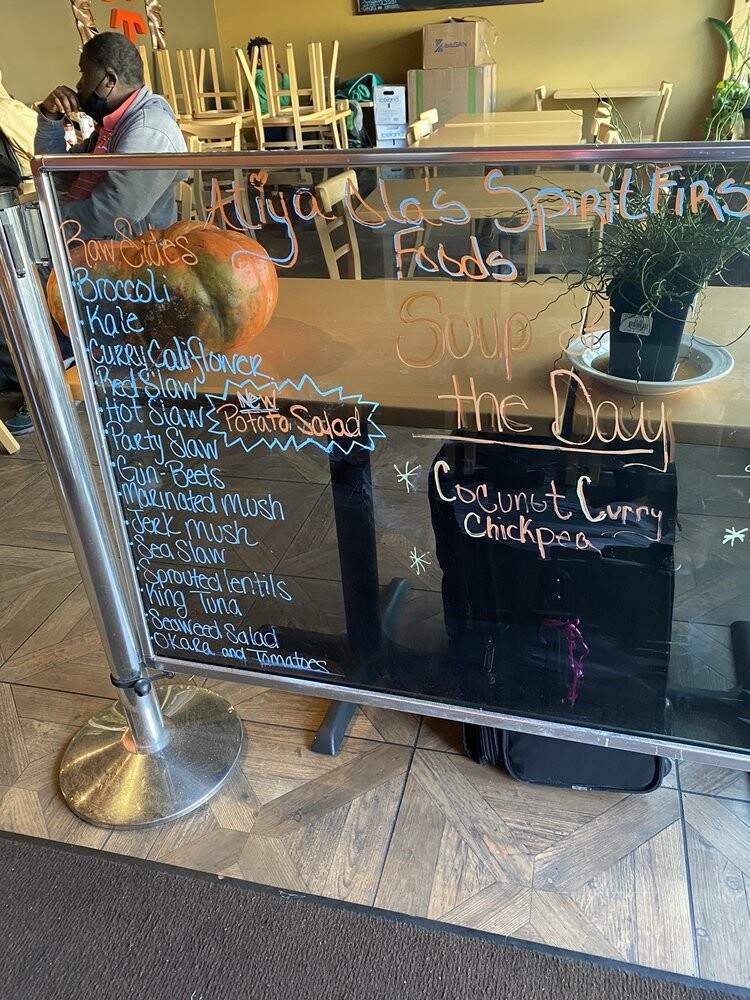 Aliya Ola's SpiritFirs
Foods
Raw Sides
Broccoli
Kale
Curry Califlower
Red Slaw
Hot Slaw
New
Potato Salad
Party Slaw
Gin-Beets
Marinated mush
Jerk mush
Sea Slaw
Sprouted lentils
King Tuna
Seaweed Salad
Okara and Tomatoes
Soup of
the Day
Coconut Curry
Chickpea